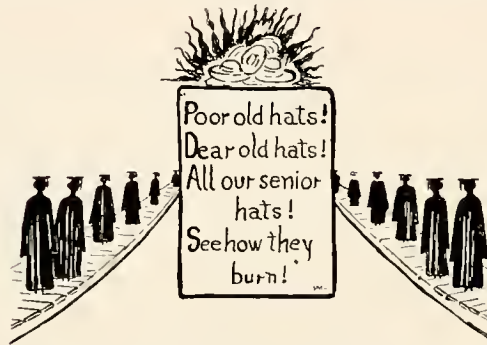 Poor old hats!
Dear old hats!
All our senior
hats!
See how they
burn!